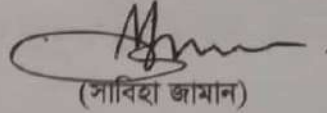 (সাবিহা জামান)